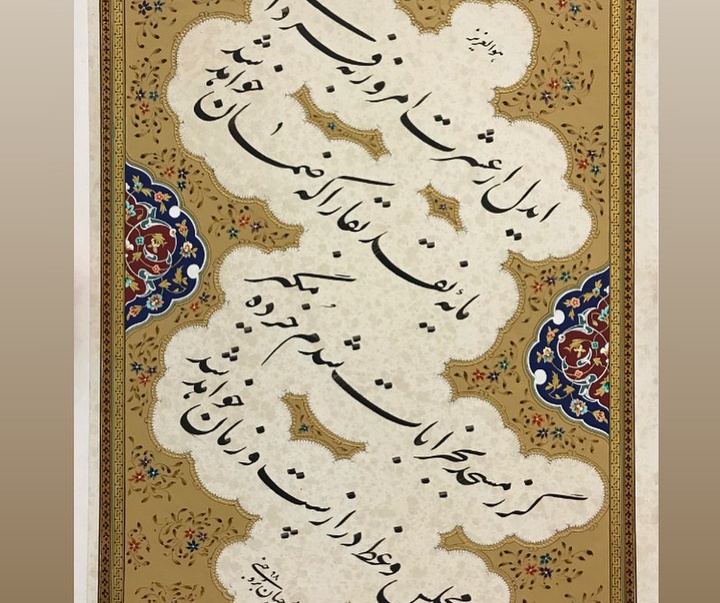 هوالعزیز
ایدل ار عشرت امروز بفردا
مایهٔ نقد بقا را که ضمان خواهد شد
گر ز مسجد بخرابات شدم خرده مگیر
مجلس وعظ درازست و زمان خواهد شد